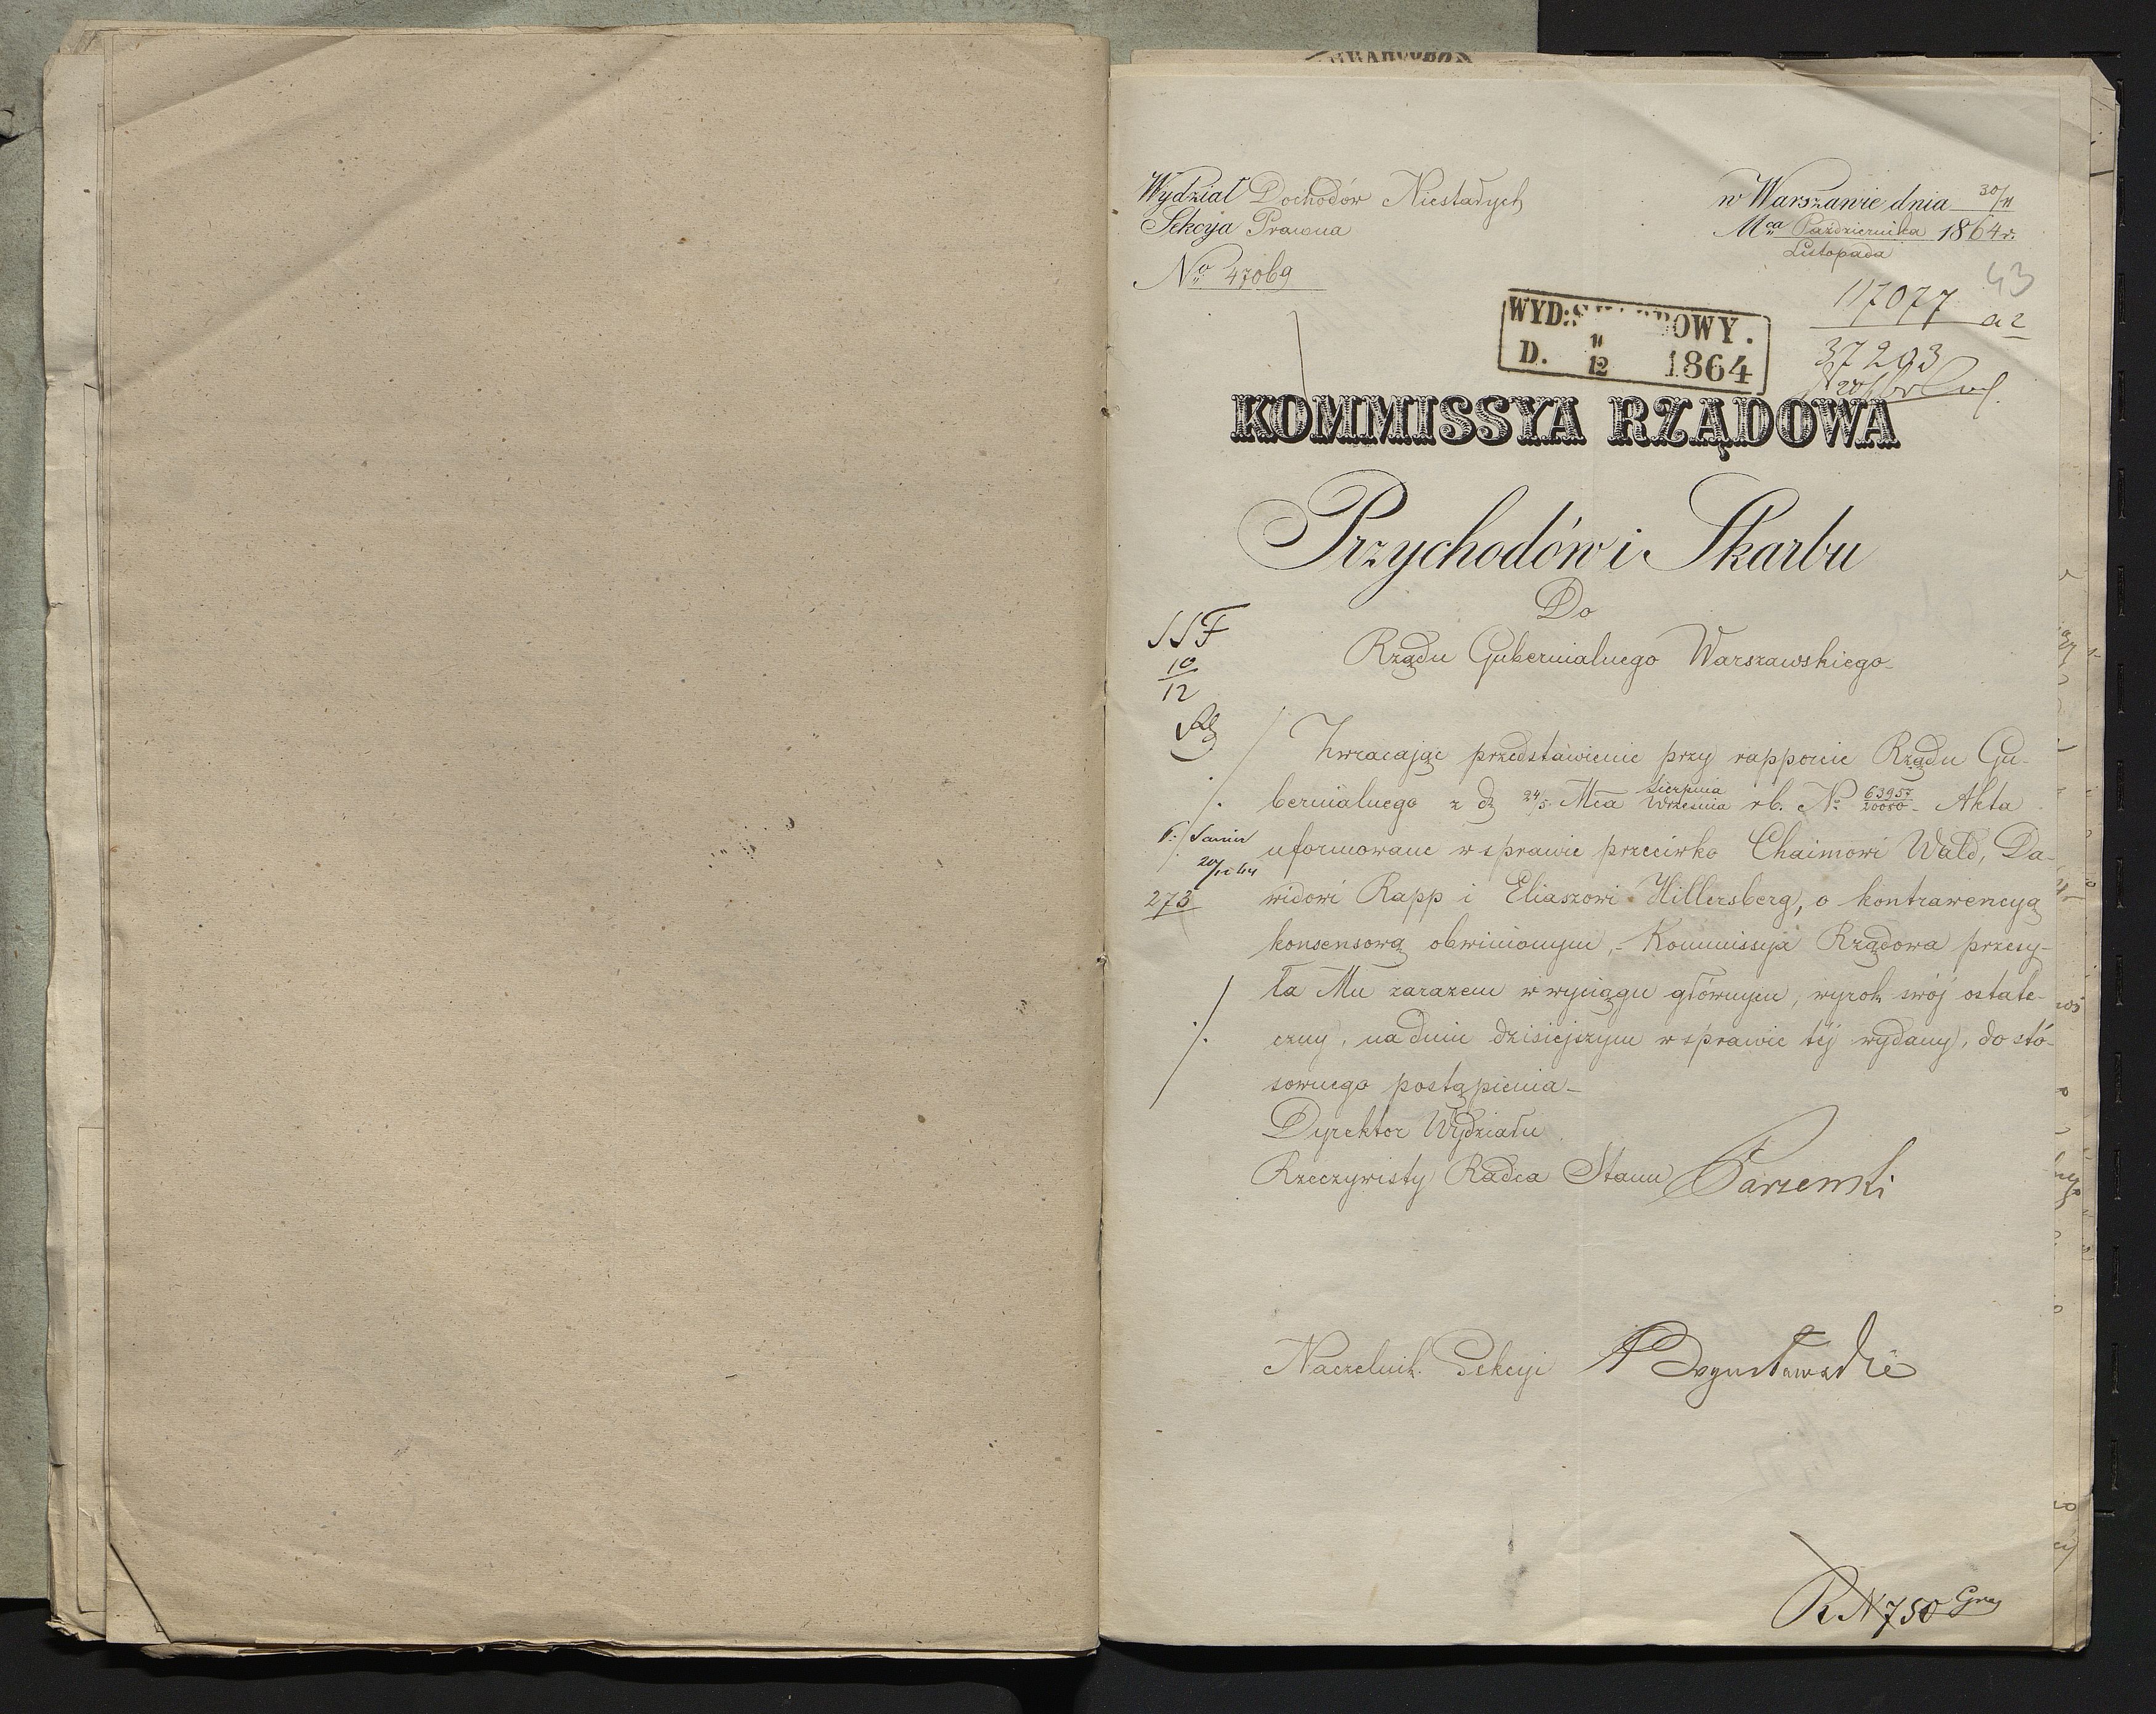 Wydział Dochodów Niestałych
Sekcya Prawna
No 47069
w Warszawie dnia 30/11
Mca Października 1864 r.
Listopada
43
117077
a 2
37293
WYD: OWY.
D. 11/12 1864
KOMMISSYA RZĄDOWA
Przychodów i Skarbu
Do
Rządu Gubernialnego Warszawskiego
10
12
Zwracając przedstawienie przy rapporcie Rządu Gu-
bernialnego z d. 24/5 Mca Sierpnia/Września rb. No 63957/20050 - Akta
uformowane w sprawie przeciwko Chaimowi Wald, Da-
widowi Rapp i Eliaszowi Hillersberg, o kontrawencyą
273
konsensową obwinionym, - Kommissyja Rządowa przesy-
ła Mu zarazem w wyciągu głównym, wyrok swój ostate-
czny, na dniu dzisiejszym w sprawie téj wydany, do stó-
sownego postąpienia -
Dyrektor Wydziału
Rzeczywisty Radca Stanu
Naczelnik Sekcyi
R N 750